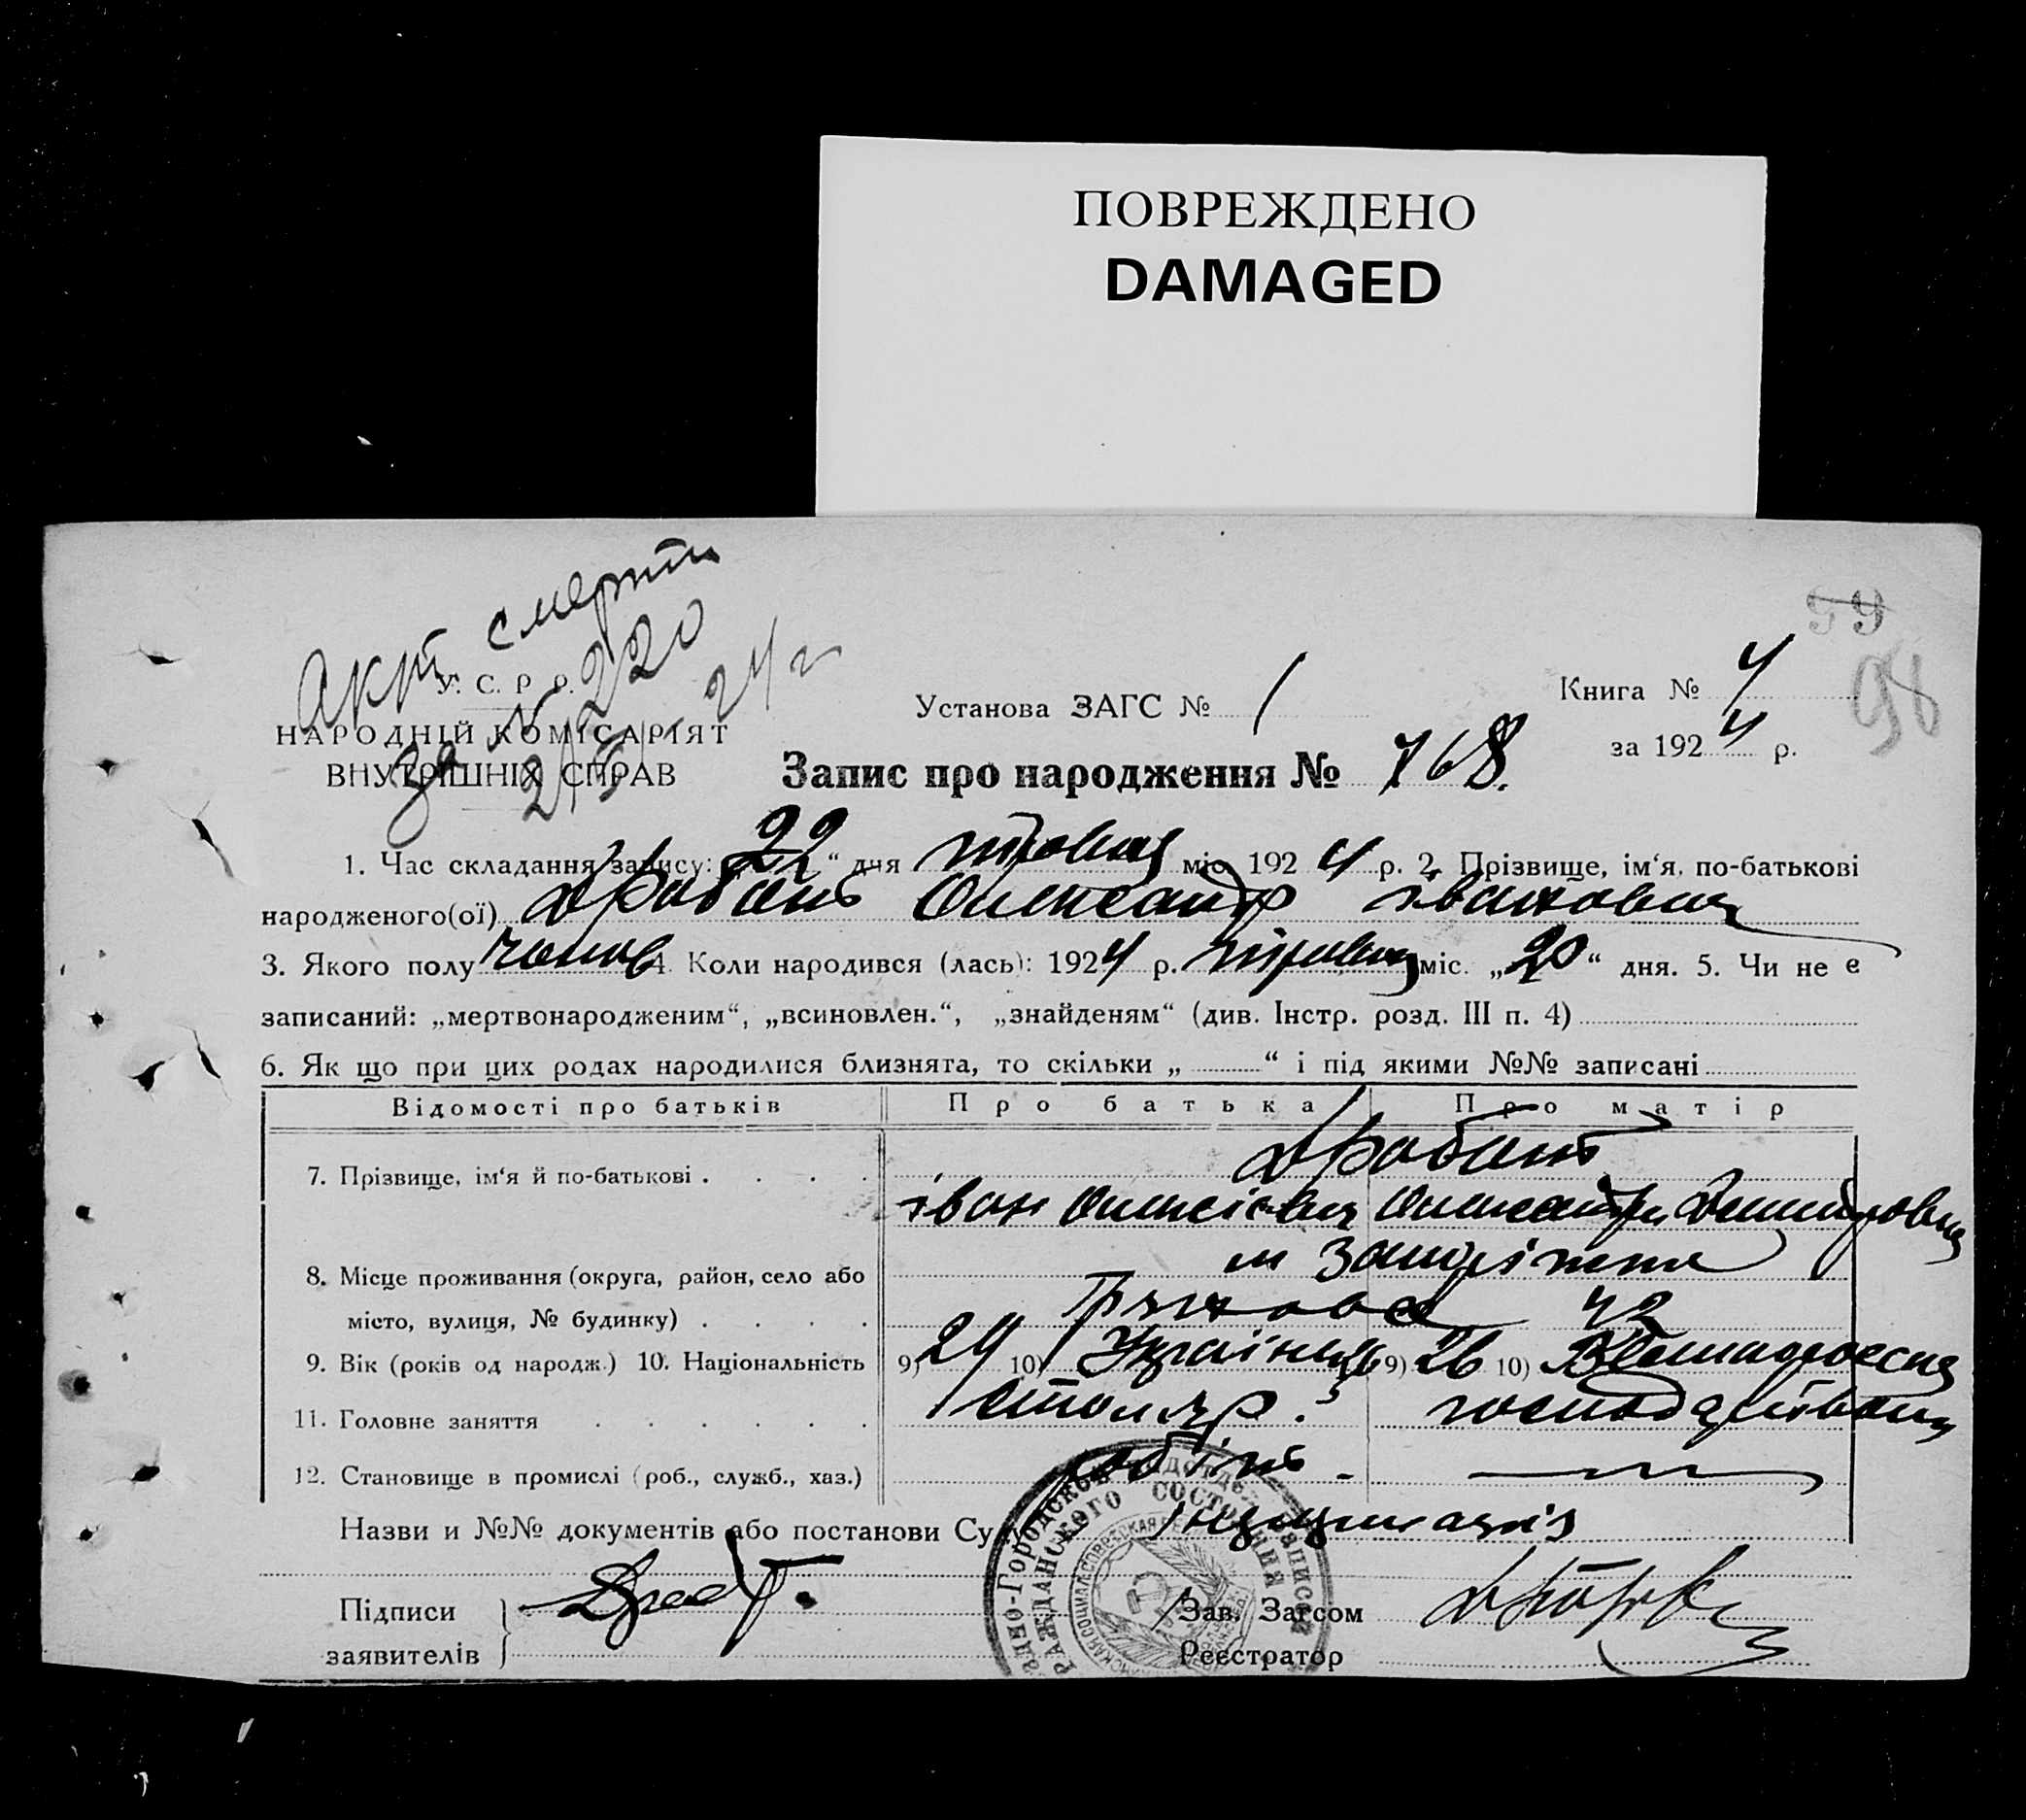 ПОВРЕЖДЕНО
DAMAGED
Акт смерти
за № 220
24 г
59
98
У. С. Р. Р.
НАРОДНІЙ КОМІСАРІЯТ
ВНУТРІШНІХ СПРАВ
Установа ЗАГС № 1
Книга № 4
за 1924 р.
Запис про народження № 768.
1. Час складання запису: „22“ дня травня міс. 1924 р. 2. Прізвище, ім‘я, по-батькові
народженого(ої) Олександр Іванович
3. Якого полу чолов 4. Коли народився (лась): 1924 р. травня міс. „20“ дня. 5. Чи не є
записаний: „мертвонародженим“, „всиновлен.“, „знайденям“ (див. Інстр. розд. III п. 4)
6. Як що при цих родах народилися близнята, то скільки „ “ і під якими №№ записані
Відомості про батьків Про батька Про матір
7. Прізвище, ім‘я й по-батькові
Іван Олексієвич Олександра
8. Місце проживання (округа, район, село або м Запоріжжя
місто, вулиця, № будинку) 42
9. Вік (років од народж.) 10. Національність 9) 24 10) Українець 9) 26 10)
11. Головне заняття столяр.
12. Становище в промислі (роб., служб., хаз.) робітн.
Назви и №№ документів або постанови Су
Підписи
заявителів
Зав. Загсом
Реєстратор